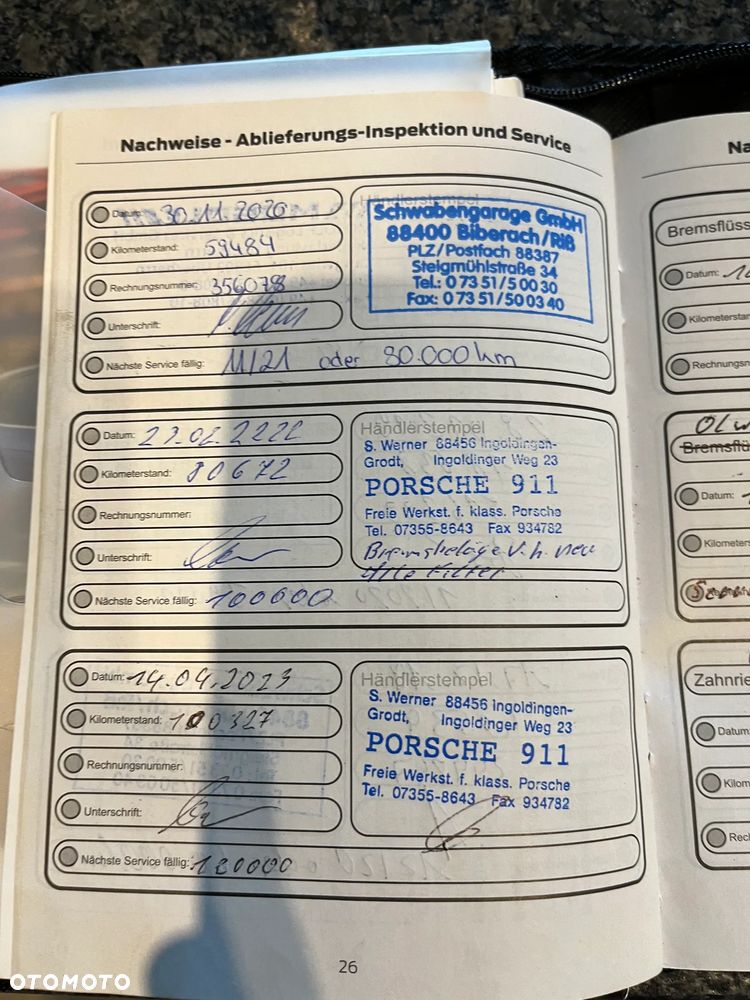 Nachweise - Ablieferungs-Inspektion und Service
Datum: 30.11.2020
Kilometerstand: 59484
Rechnungsnummer: 356078
Unterschrift:
Nächste Service fällig: 11/21 oder 80.000 km
Händlerstempel
Schwabengarage GmbH
88400 Biberach/Riß
PLZ/Postfach 88387
Steigmühlstraße 34
Tel.: 0 73 51/5 00 30
Fax: 0 73 51/50 03 40
Datum:
Kilometerstand: 80672
Rechnungsnummer:
Unterschrift:
Nächste Service fällig: 100000
Händlerstempel
S. Werner 88456 Ingoldingen-
Grodt, Ingoldinger Weg 23
PORSCHE 911
Freie Werkst. f. klass. Porsche
Tel. 07355-8643 Fax 934782
Bremsbeläge v. h. neu
Alle Filter
Datum: 14.04.2023
Kilometerstand: 100327
Rechnungsnummer:
Unterschrift:
Nächste Service fällig: 120000
Händlerstempel
S. Werner 88456 Ingoldingen-
Grodt, Ingoldinger Weg 23
PORSCHE 911
Freie Werkst. f. klass. Porsche
Tel. 07355-8643 Fax 934782
26
Na
Bremsflüss
Datum:
Kilometerstan
Rechnungsn
Bremsflü
Datum:
Kilometers
Zahnrie
Datum
Kilom
Rech
OTOMOTO